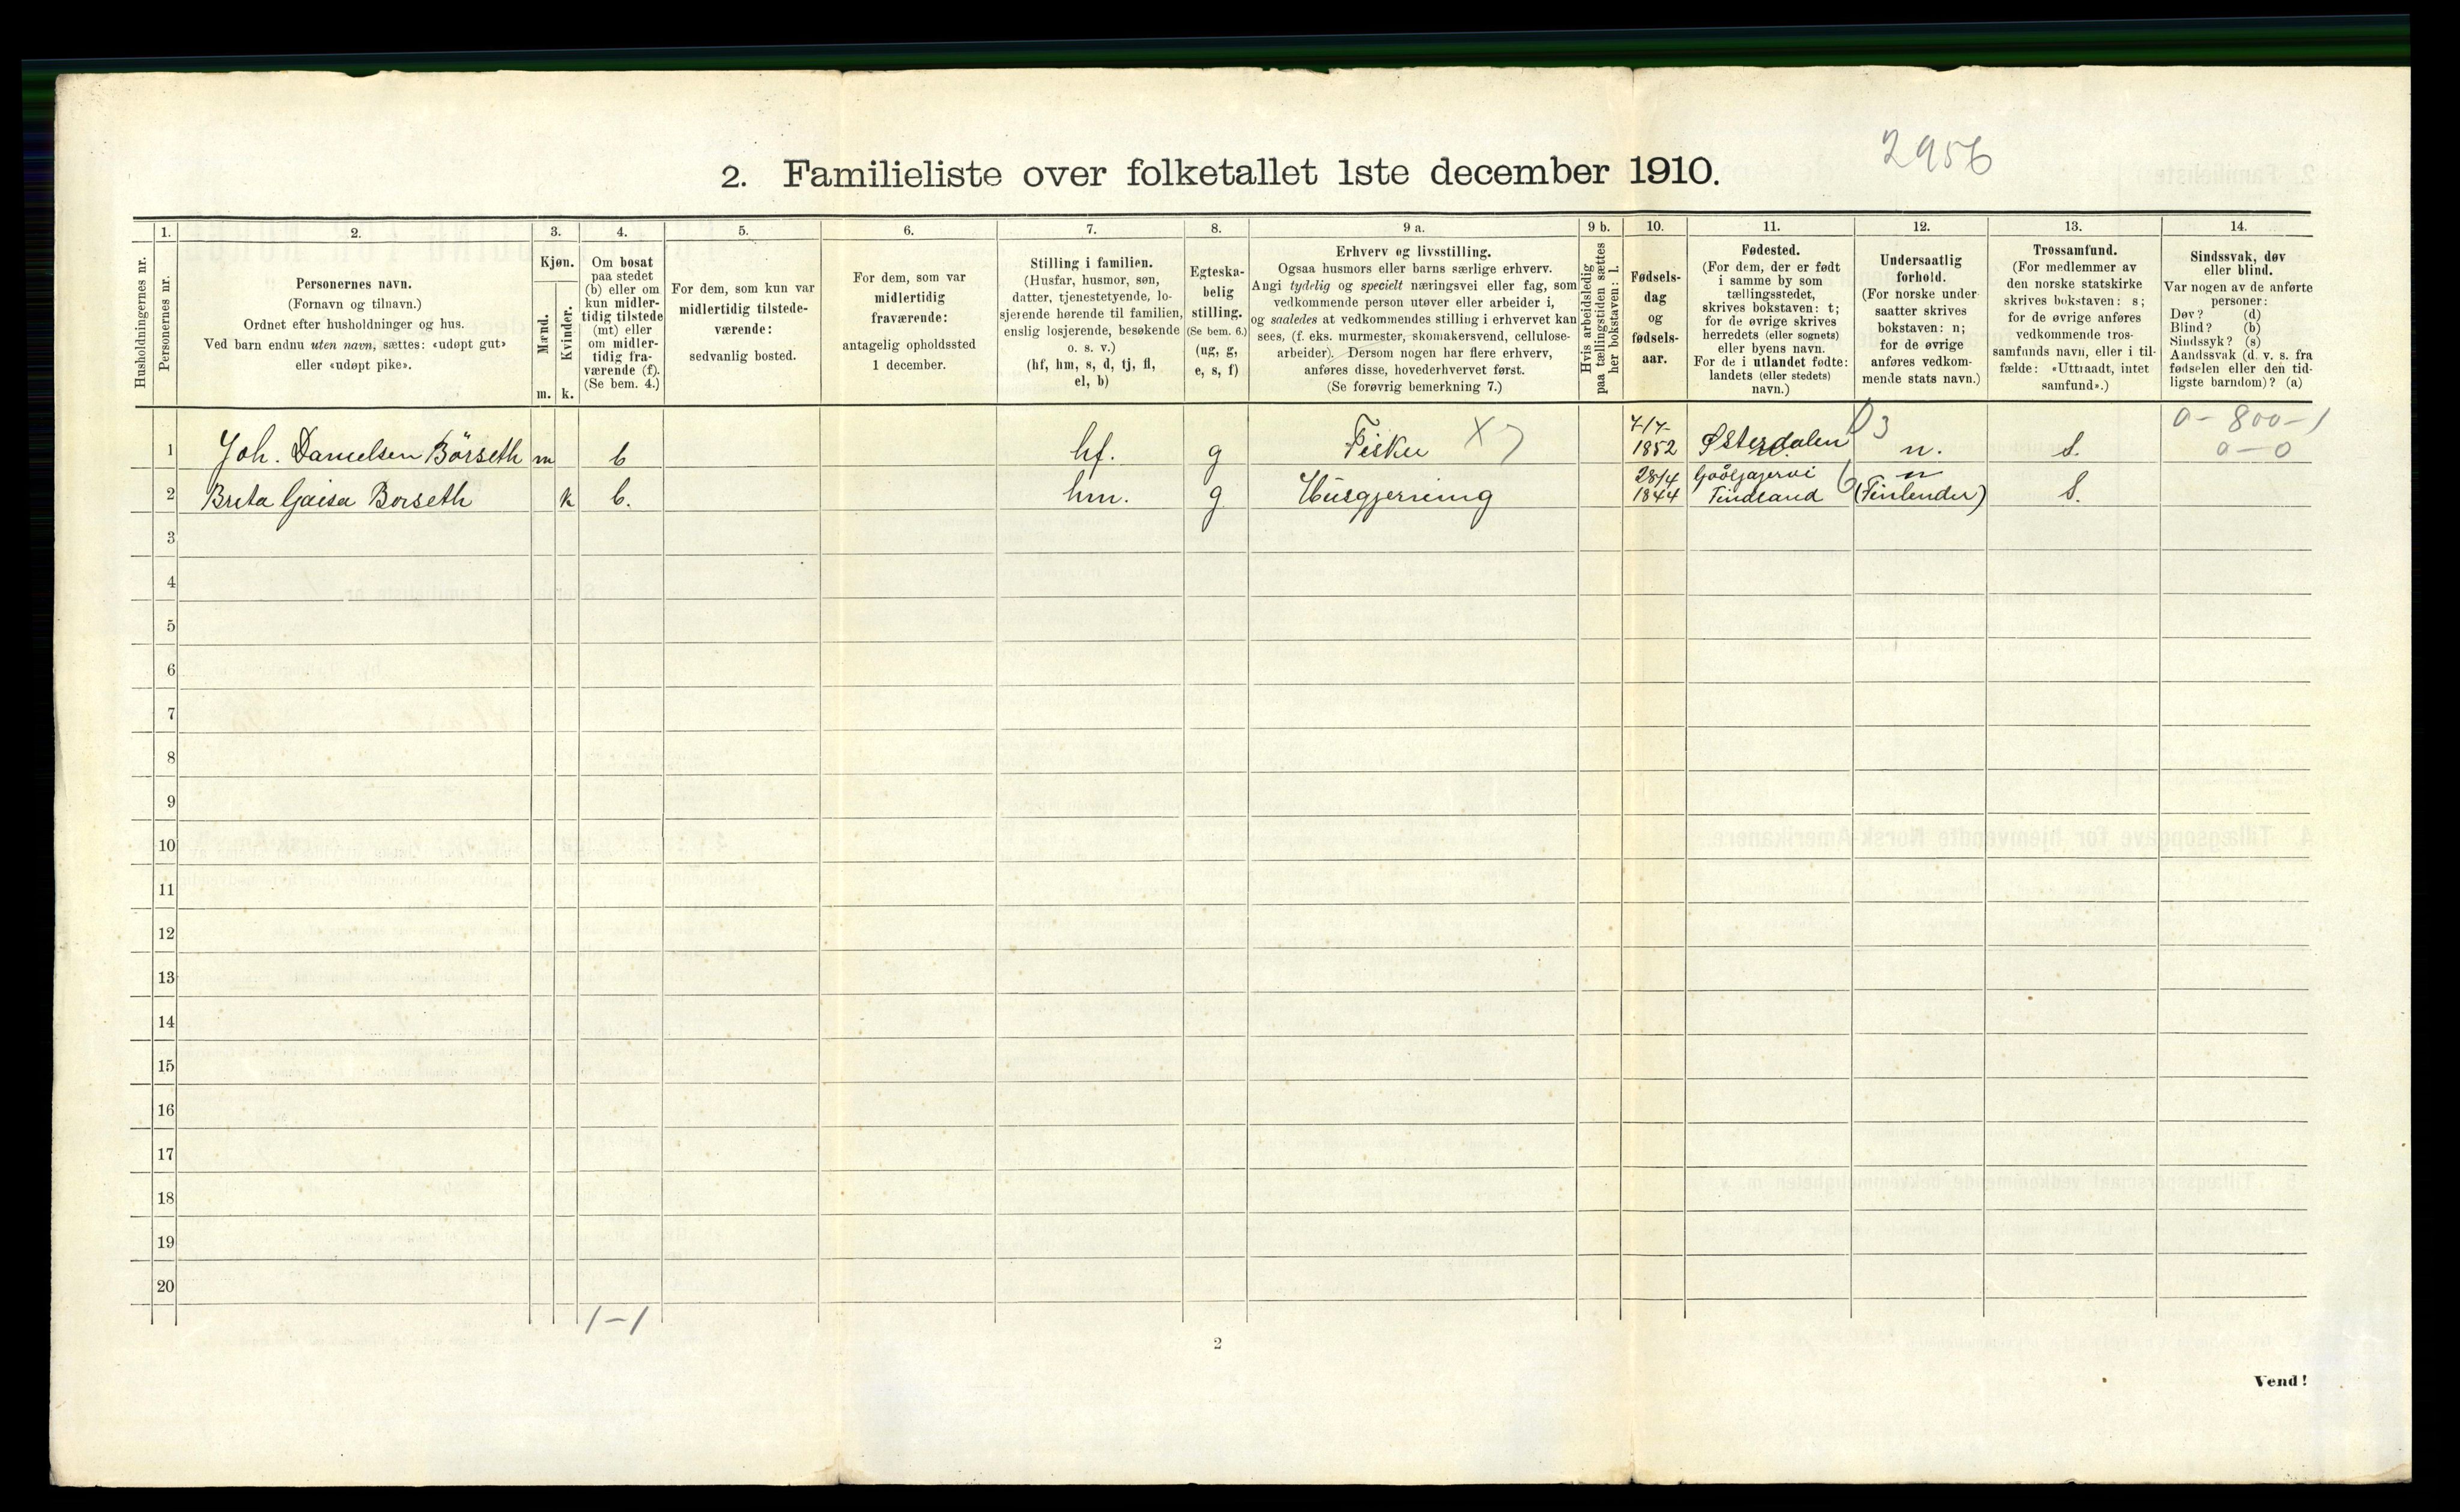 2956
2. Familieliste over folketallet 1ste december 1910.
1. 2. 3. 4. 5. 6. 7. 8. 9 a. 9 b. 10. 11. 12. 13. 14.
Husholdningernes nr.
Personernes nr.
Personernes navn.
(Fornavn og tilnavn.)
Ordnet efter husholdninger og hus.
Ved barn endnu uten navn, sættes: «udøpt gut»
eller «udøpt pike».
Kjøn.
Mænd.
Kvinder.
m. k.
Om bosat
paa stedet
(b) eller om
kun midler-
tidig tilstede
(mt) eller
om midler-
tidig fra-
værende (f).
(Se bem. 4.)
For dem, som kun var
midlertidig tilstede-
værende:
sedvanlig bosted.
For dem, som var
midlertidig
fraværende:
antagelig opholdssted
1 december.
Stilling i familien.
(Husfar, husmor, søn,
datter, tjenestetyende, lo-
sjerende hørende til familien,
enslig losjerende, besøkende
o. s. v.)
(hf, hm, s, d, tj, fl,
el, b)
Egteska-
belig
stilling.
(Se bem. 6.)
(ug, g,
e, s, f)
Erhverv og livsstilling.
Ogsaa husmors eller barns særlige erhverv.
Angi tydelig og specielt næringsvei eller fag, som
vedkommende person utøver eller arbeider i,
og saaledes at vedkommendes stilling i erhvervet kan
sees, (f. eks. murmester, skomakersvend, cellulose-
arbeider). Dersom nogen har flere erhverv,
anføres disse, hovederhvervet først.
(Se forøvrig bemerkning 7.)
Hvis arbeidsledig
paa tællingstiden sættes
her bokstaven: l.
Fødsels-
dag
og
fødsels-
aar.
Fødested.
(For dem, der er født
i samme by som
tællingsstedet,
skrives bokstaven: t;
for de øvrige skrives
herredets (eller sognets)
eller byens navn.
For de i utlandet fødte:
landets (eller stedets)
navn.)
Undersaatlig
forhold.
(For norske under-
saatter skrives
bokstaven: n;
for de øvrige
anføres vedkom-
mende stats navn.)
Trossamfund.
(For medlemmer av
den norske statskirke
skrives bokstaven: s;
for de øvrige anføres
vedkommende tros-
samfunds navn, eller i til-
fælde: «Uttraadt, intet
samfund».)
Sindssvak, døv
eller blind.
Var nogen av de anførte
personer:
Døv? (d)
Blind? (b)
Sindssyk? (s)
Aandssvak (d. v. s. fra
fødselen eller den tid-
ligste barndom)? (a)
1 Joh. Danielsen Börseth m b hf. g Fisker X 7 7/7- 1852 Østerdalen 03 n. S. 0-800-1
0-0
2 Breta Gaisa Borseth k b. hm. g Husgjerning 28/4 1844 Findland 6 n (Finlender) S.
3
4
5
6
7
8
9
10
11
12
13
14
15
16
17
18
19
20
1-1
2
Vend!